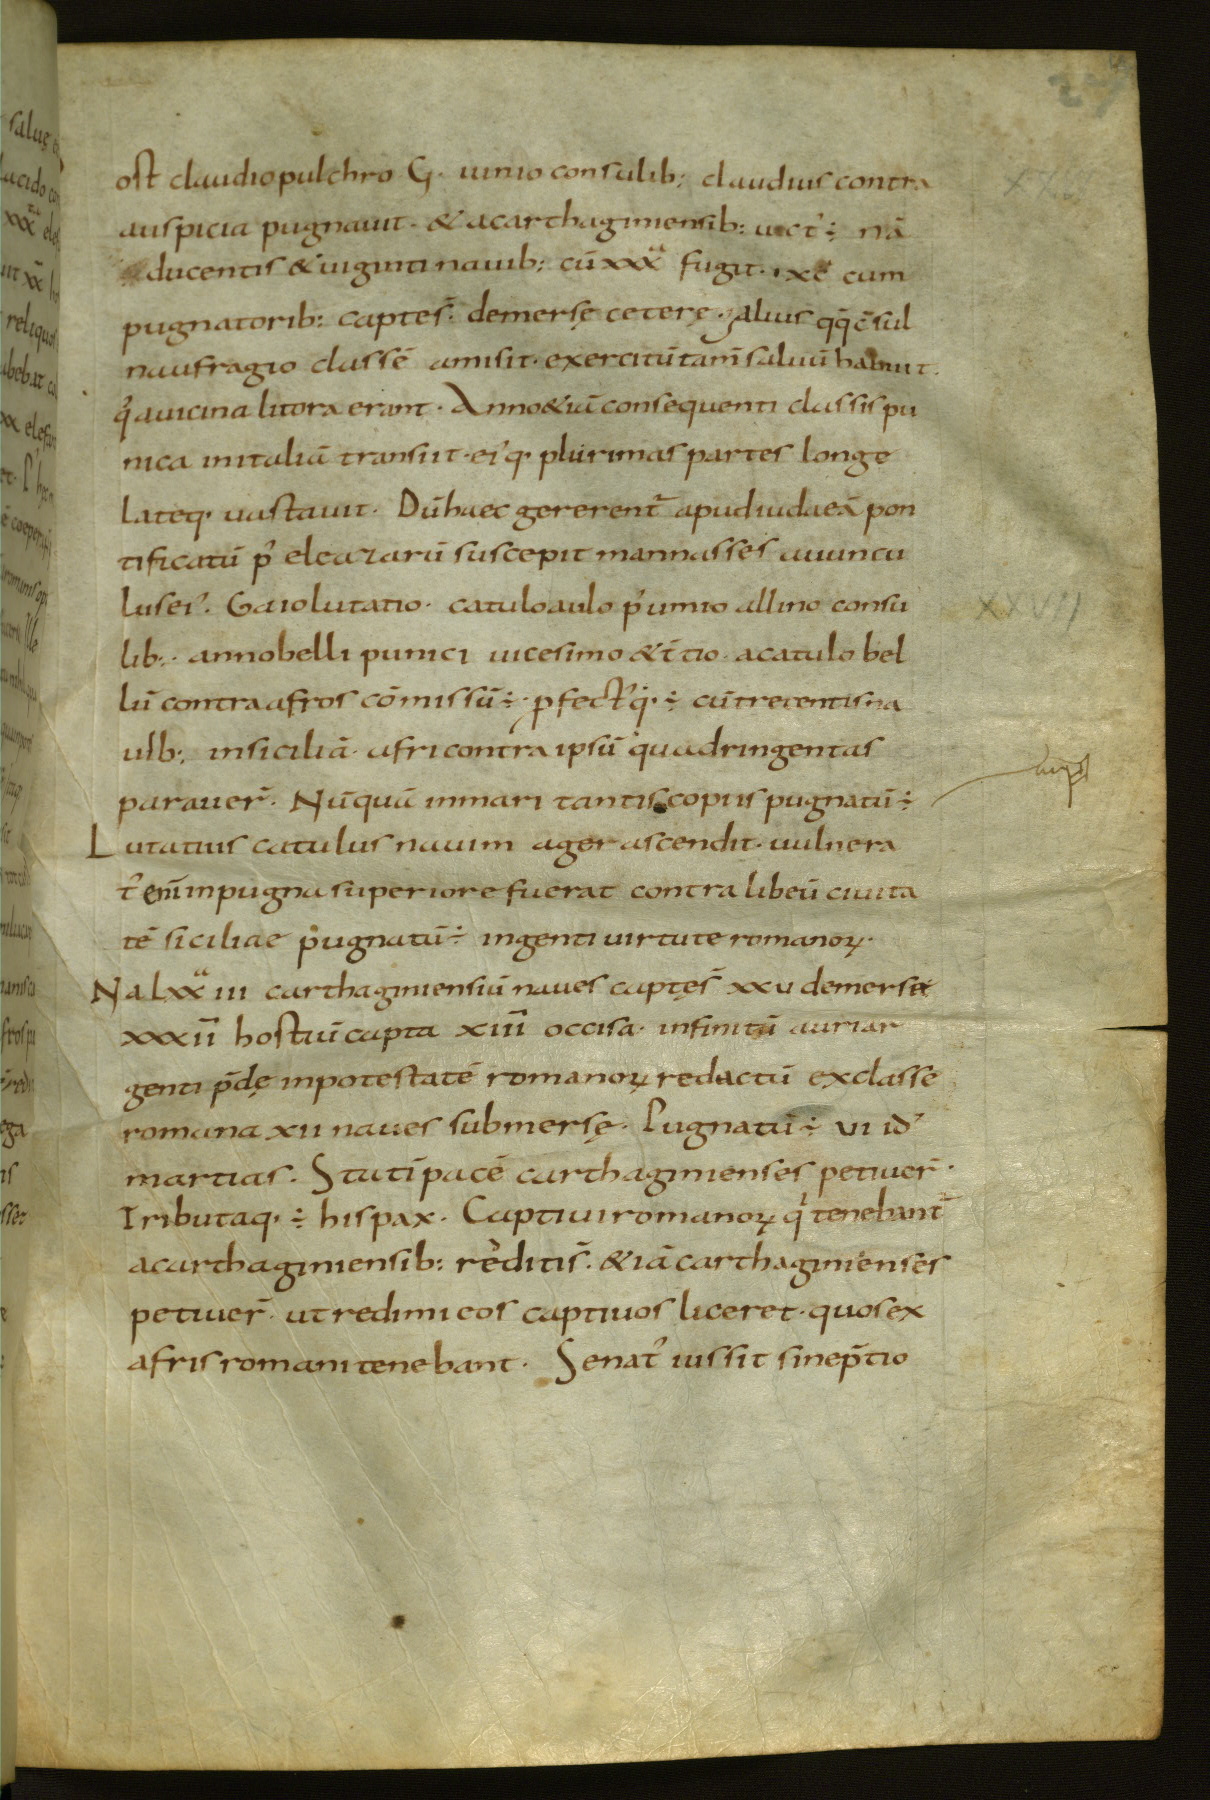 ost claudio pulchro G. iunio consulib: claudius contra
auspicia pugnauit. & acarthaginiensib: uict᾽ ÷ nā
ducentis & uiginti nauib: cū xxxᵃ fugit. xc cum
pugnatorib: capte s̄. demersę ceterę. alius qq̄ c̄sul
naufragio classē amisit. exercitū tam̄ saluū habuit.
q᾽ auicina litora erant. Anno &iā consequenti classis pu
nica initaliā transiit. ei᾽q. plurimas partes longe
lateq. uastauit. Dū haec gererent᾽ apud iudaeā pon
tificatū p᾽ eleazarū suscepit mannasses auuncu
lus ei᾽. Gaio lutatio. catulo aulo p᾽umio allino consu
lib:. anno belli punici uicesimo & t̄tio. acatulo bel
lū contra afros cōmissū ÷. pfect᾽ q. ÷ cū trecentis na
uib:, insiciliā. afri contra ipsū quadringentas
parauer̄. Nūquā inmari tantis copiis pugnatū ÷
Lutatius catulus nauim ager ascendit. uulnera
t᾽ eni̅ inpugna superiore fuerat contra libeū ciuita
tē siciliae pugnatū ÷ ingenti uirtute romanoꝝ.
Na lxxᵃ iii carthaginiensiū naues captę s̄ xxu demersę
xxxii̅ hostiū capta xiii̅ occisa. infinitū auri ar
genti p̄dę inpotestatē romanoꝝ redactū exclasse
romana xii naues submersę. Pugnatū ÷ ui id᾽
martias. Statī pacē carthaginienses petiuer̄.
Tributaq. ÷ his pax. Captiui romanoꝝ q᾽ tenebant᾽
acarthaginiensib: rediti s̄. &iā carthaginienses
petiuer̄. ut redimi eos captiuos liceret. quos ex
afris romani tenebant. Senat᾽ iussit sine p̄tio
XXVII